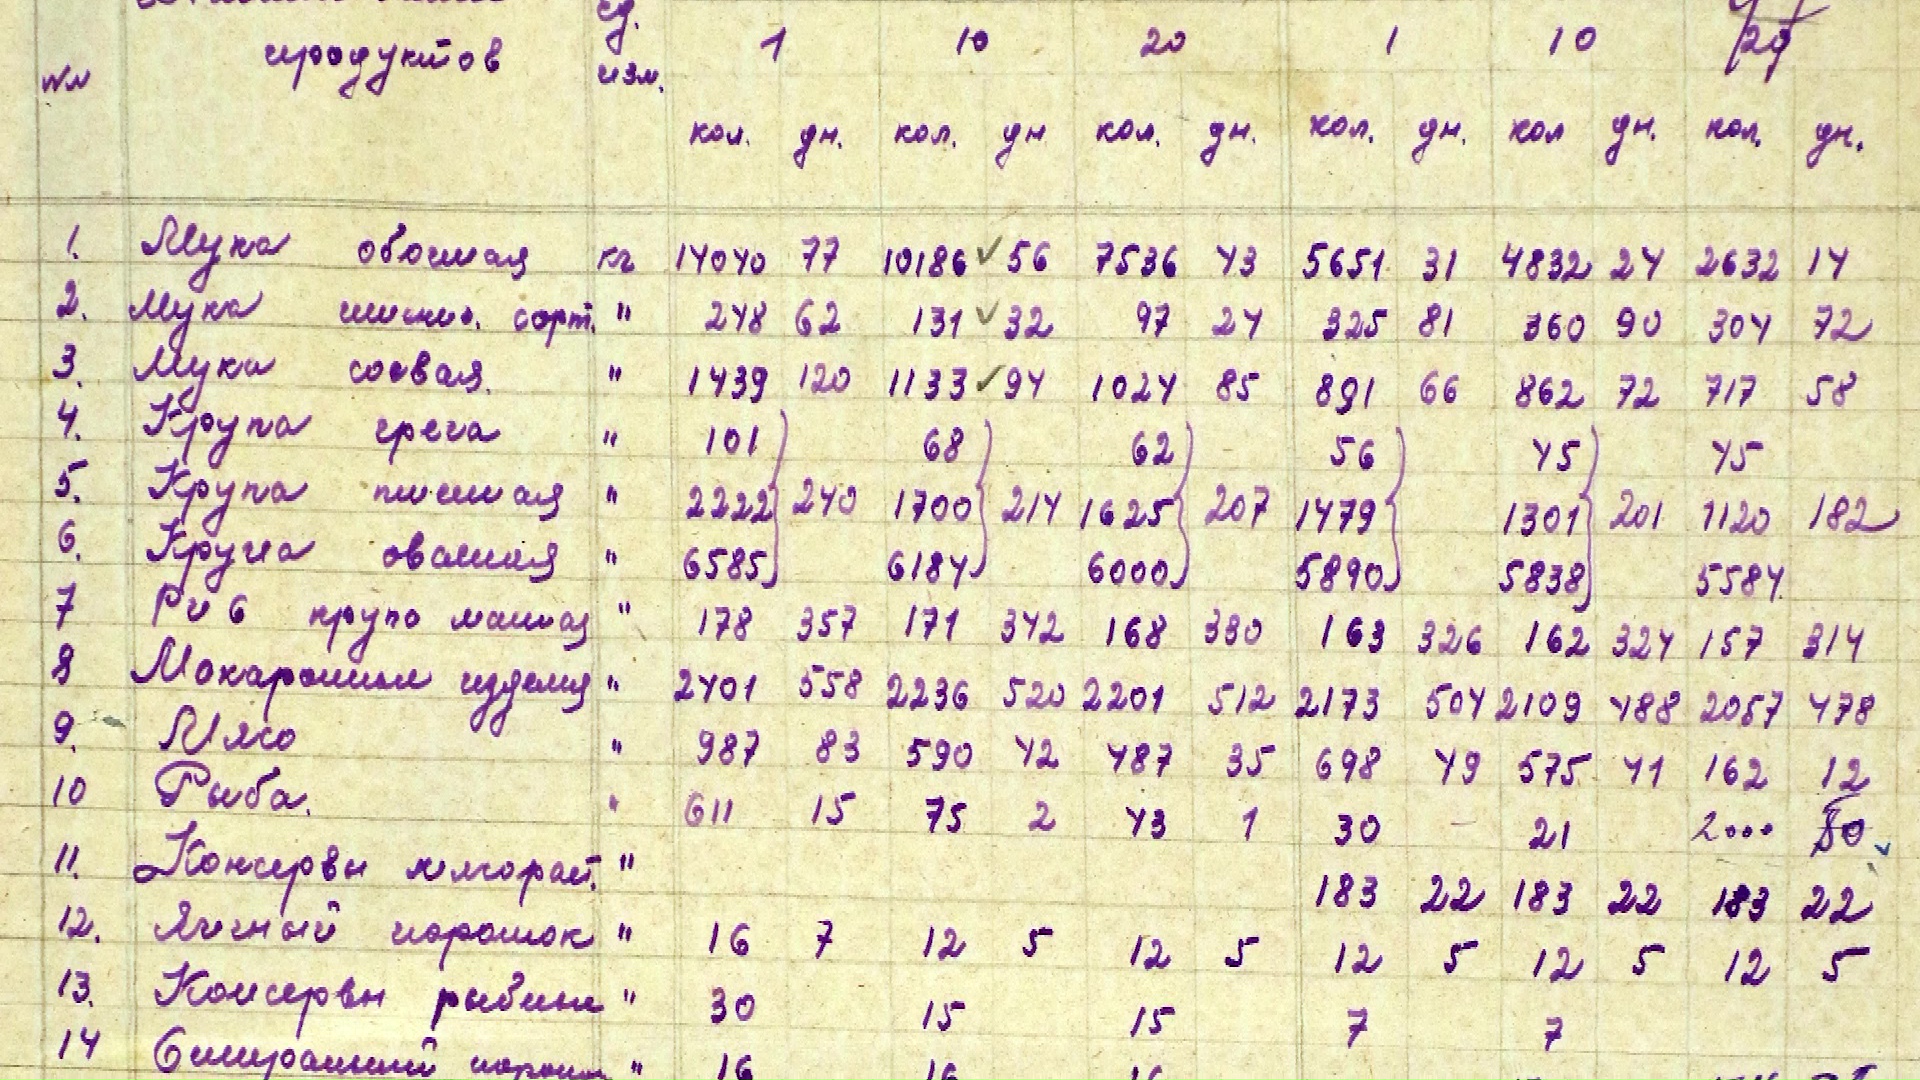 продуктов ед.
№№ изм. 1 10 20 1 10 20
кол. дн. кол. дн кол. дн. кол. дн. кол дн. кол. дн.
1. Мука обойная кг 14040 77 10186 ✓ 56 7536 43 5651 31 4832 24 2632 14
2. Мука сорт. " 248 62 131 ✓ 32 97 24 325 81 360 90 304 72
3. Мука соевая. " 1439 120 1133 ✓ 94 1024 85 891 66 862 72 717 58
4. Крупа греча " 101 68 62 56 45 45
5. Крупа пшенная " 2222 240 1700 214 1625 207 1479 1301 201 1120 182
6. Крупа овсяная " 6585 6184 6000 5890 5838 5584
7 Рис крупа манная " 178 357 171 342 168 330 163 326 162 324 157 314
8 Макаронные изделия " 2401 558 2236 520 2201 512 2173 504 2109 488 2057 478
9. Мясо " 987 83 590 42 487 35 698 49 575 41 162 12
10 Рыба. " 611 15 75 2 43 1 30 – 21 2000 50
11. Консервы " 183 22 183 22 183 22
12. Яичный порошок " 16 7 12 5 12 5 12 5 12 5 12 5
13. Консервы рыбные " 30 15 15 7 7
14 " 16 16 16